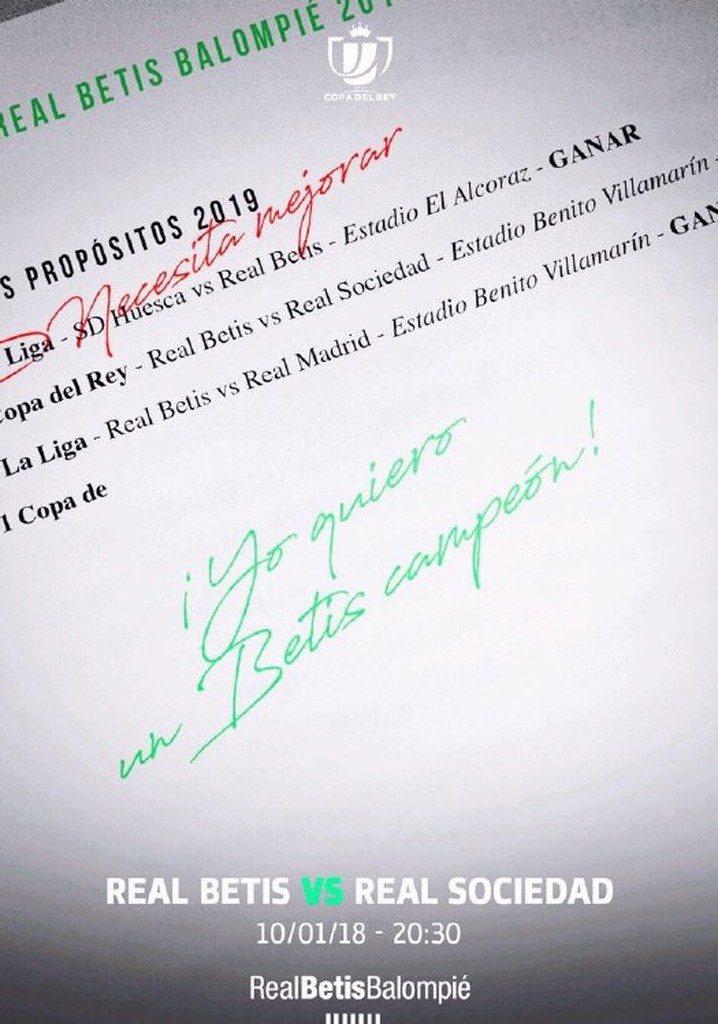 REAL BETIS BALOMPIÉ
COPA DEL REY
PROPÓSITOS 2019
Necesita mejorar
Liga - SD Huesca vs Real Betis - Estadio El Alcoraz - GANAR
Copa del Rey - Real Betis vs Real Sociedad - Estadio Benito Villamarín -
La Liga - Real Betis vs Real Madrid - Estadio Benito Villamarín -
Copa de
¡Yo quiero
un Betis campeón!
REAL BETIS VS REAL SOCIEDAD
10/01/18 - 20:30
RealBetisBalompié